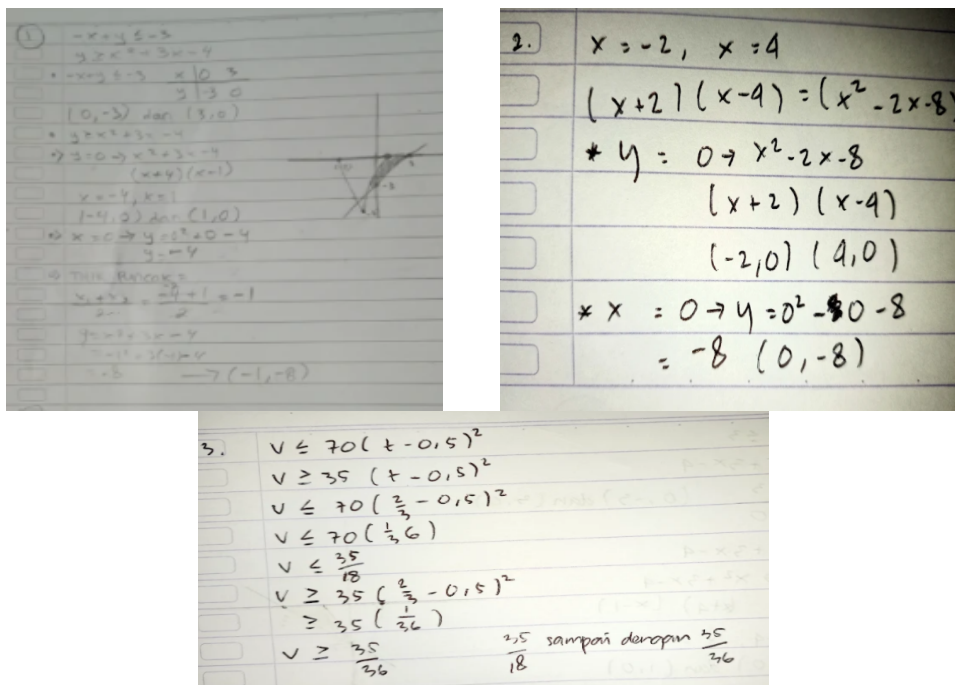 1 -x+y ≤ -3
y ≥ x² + 3x - 4
• -x+y ≤ -3 x | 0 3
y | -3 0
(0,-3) dan (3,0)
• y ≥ x² + 3x - 4
→ y=0 → x² + 3x - 4
(x+4)(x-1)
x = -4, x = 1
(-4,0) dan (1,0)
→ x=0 → y=0²+0-4
y = -4
→ Titik Puncak =
x₁+x₂ / 2 = -4+1 / 2 = -1
y = x² + 3x - 4
= -8 → (-1,-8)
-3
2. x = -2, x = 4
(x+2)(x-4) = (x² - 2x - 8)
* y = 0 → x² - 2x - 8
(x+2)(x-4)
(-2,0) (4,0)
* x = 0 → y = 0² - 0 - 8
= -8 (0,-8)
3. v ≤ 70(t - 0,5)²
v ≥ 35 (t - 0,5)²
v ≤ 70(2/3 - 0,5)²
v ≤ 70(1/36)
v ≤ 35/18
v ≥ 35 (2/3 - 0,5)²
≥ 35 (1/36)
v ≥ 35/36 35/18 sampai dengan 35/36